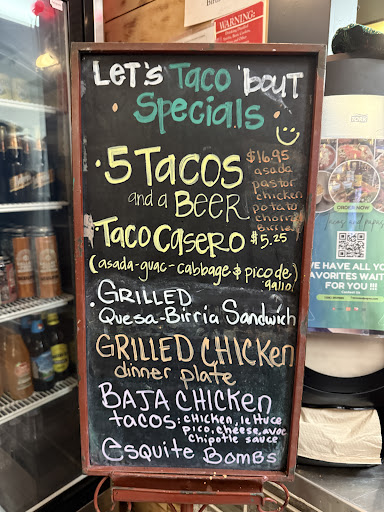 WARNING:
LET'S Taco 'bout
Specials
• 5 TACOS
and a BEER
$16.95
asada
pastor
chicken
potato
chorizo
Birria
• Taco Casero $5.25
(asada-guac-cabbage & pico de gallo)
• GRILLED
Quesa-Birria Sandwich
GRILLED CHICKEN
dinner plate
BAJA CHICKEN
tacos: chicken, lettuce
pico, cheese, avoc
chipotle sauce
Esquite Bombs
ORDER NOW
WE HAVE ALL YO
AVORITES WAIT
FOR YOU !!!